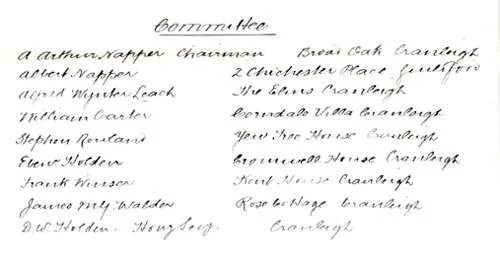 Committee
A Arthur Napper Chairman Broad Oak Cranleigh
Albert Napper 2 Chichester Place Guildford
Alfred Wynter Leach The Elms Cranleigh
William Carter Ferndale Villa Cranleigh
Stephen Rowland Yew Tree House Cranleigh
Eben. Holden Cromwell House Cranleigh
Frank Winser Kent House Cranleigh
James Walder Rose Cottage Cranleigh
D.W. Holden. Hony Secy. Cranleigh